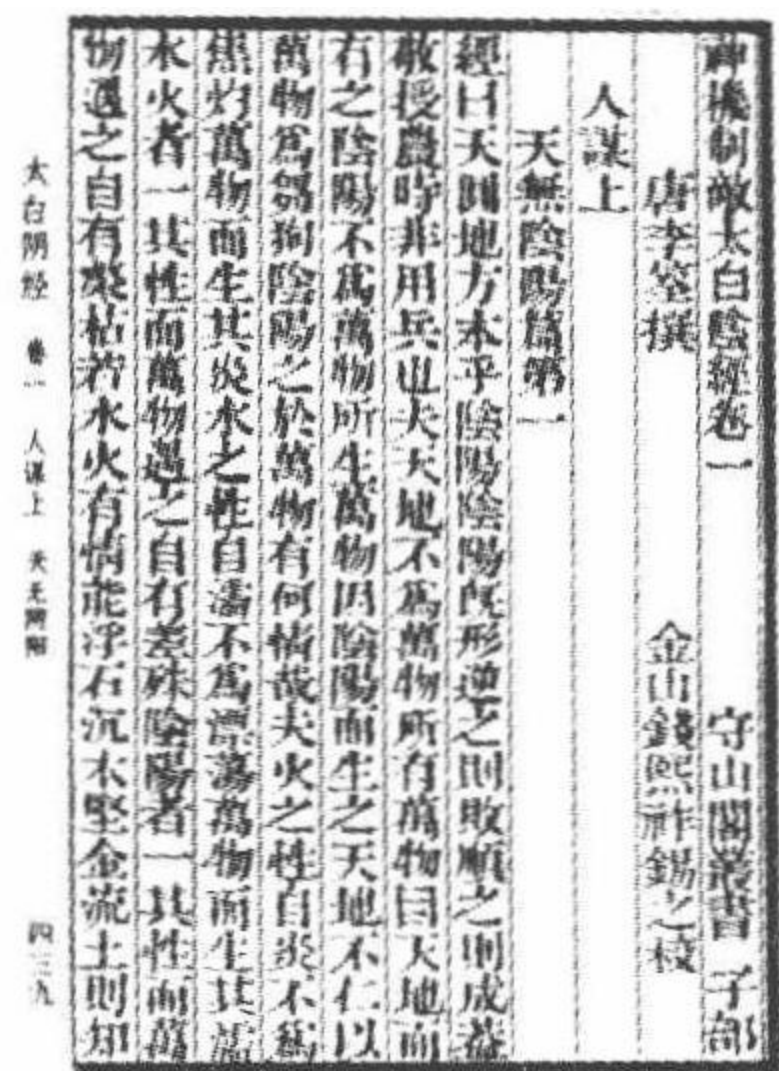 神機制敵太白陰經卷一 守山閣叢書 子部
唐李筌撰 金山錢熙祚錫之校
人謀上
天無陰陽篇第一
經曰天圓地方本乎陰陽陰陽既形逆之則敗順之則成蓋
敬授農時非用兵也夫天地不爲萬物所有萬物因天地而
有之陰陽不爲萬物所生萬物因陰陽而生之天地不仁以
萬物爲芻狗陰陽之於萬物有何情哉夫火之性自炎不爲
焦灼萬物而生其炎水之性自濡不爲漂蕩萬物而生其濡
水火者一其性而萬物遇之自有差殊陰陽者一其性而萬
物遇之自有榮枯若水火有情能浮石沉木堅金流土則知
太白阴经 卷一 人谋上 天无阴阳
四三九